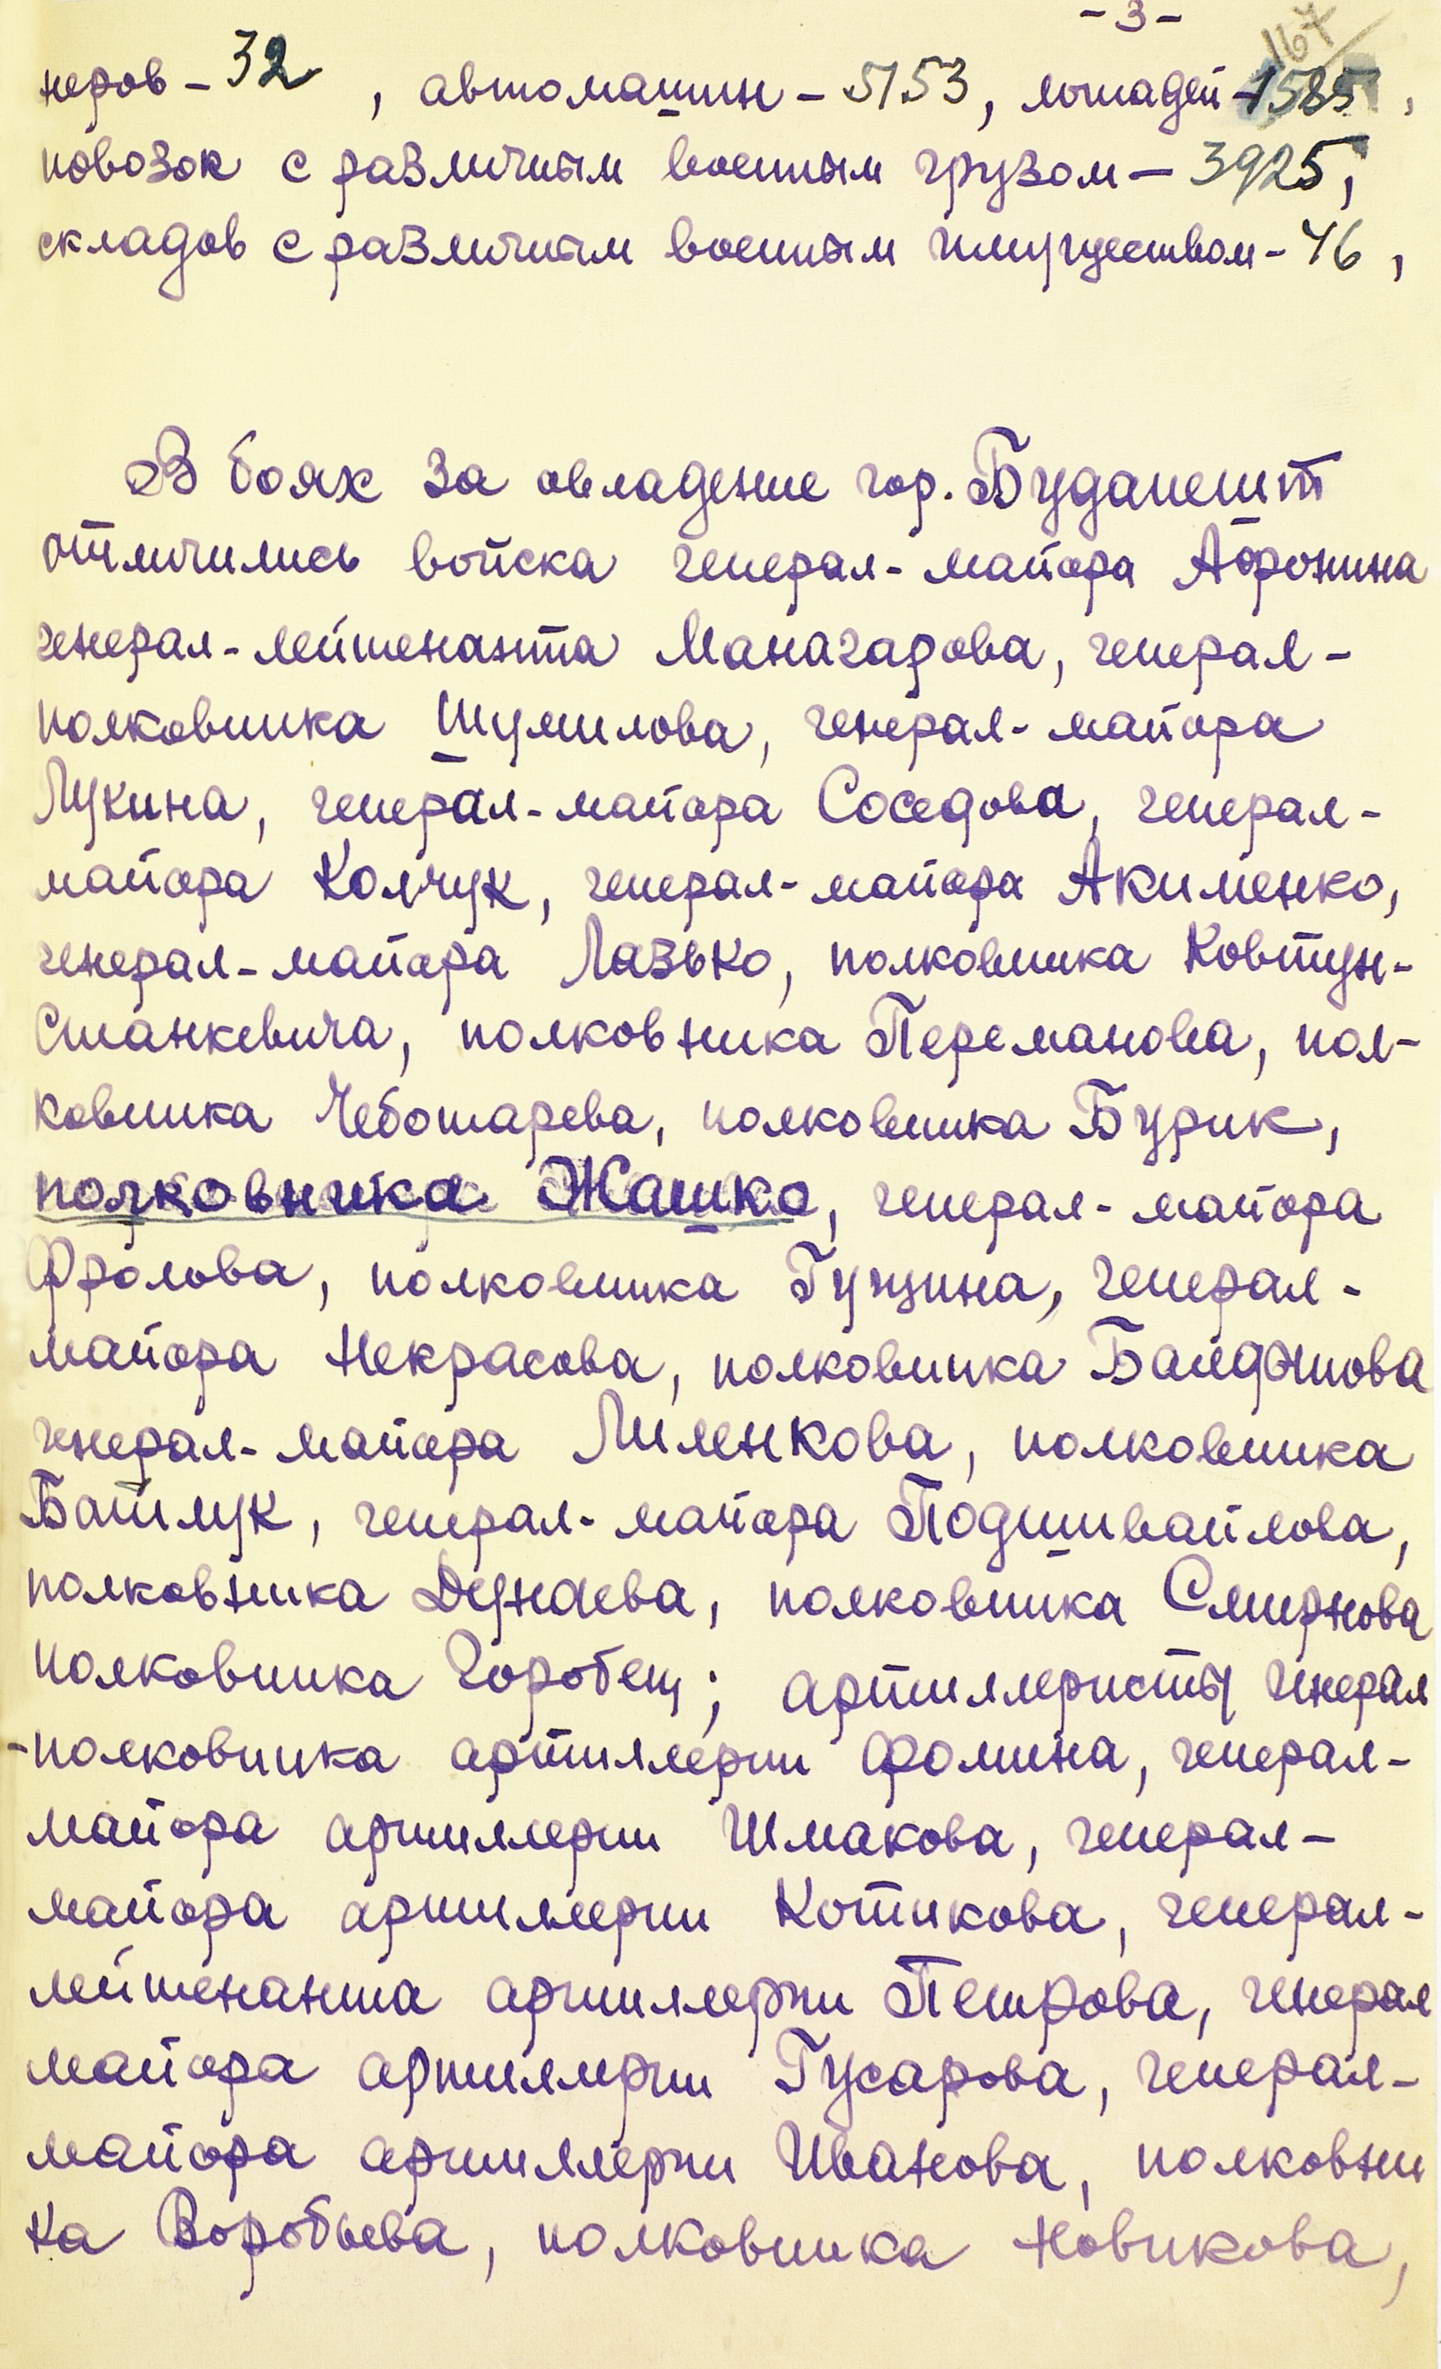 -3-
167
неров - 32, автомашин - 5153, лошадей - 1585,
повозок с различным военным грузом - 3925,
складов с различным военным имуществом - 46,
В боях за овладение гор. Будапешт
отличились войска генерал-майора Афонина
генерал-лейтенанта Манагарова, генерал-
полковника Шумилова, генерал-майора
Лукина, генерал-майора Соседова, генерал-
майора Колчук, генерал-майора Акименко,
генерал-майора Лазько, полковника Ковтун-
Станкевича, полковника Переманова, пол-
ковника Чеботарева, полковника Бурик,
полковника Жашко, генерал-майора
Фролова, полковника Гущина, генерал-
майора Некрасова, полковника Баядынова
генерал-майора Лиленкова, полковника
Батлук, генерал-майора Подшивайлова,
полковника Дунаева, полковника Смирнова
полковника Горобец; артиллеристы генерал
-полковника артиллерии Фомина, генерал-
майора артиллерии Шмакова, генерал-
майора артиллерии Котикова, генерал-
лейтенанта артиллерии Петрова, генерал
майора артиллерии Гусарова, генерал-
майора артиллерии Иванова, полковни
ка Воробьева, полковника Новикова,